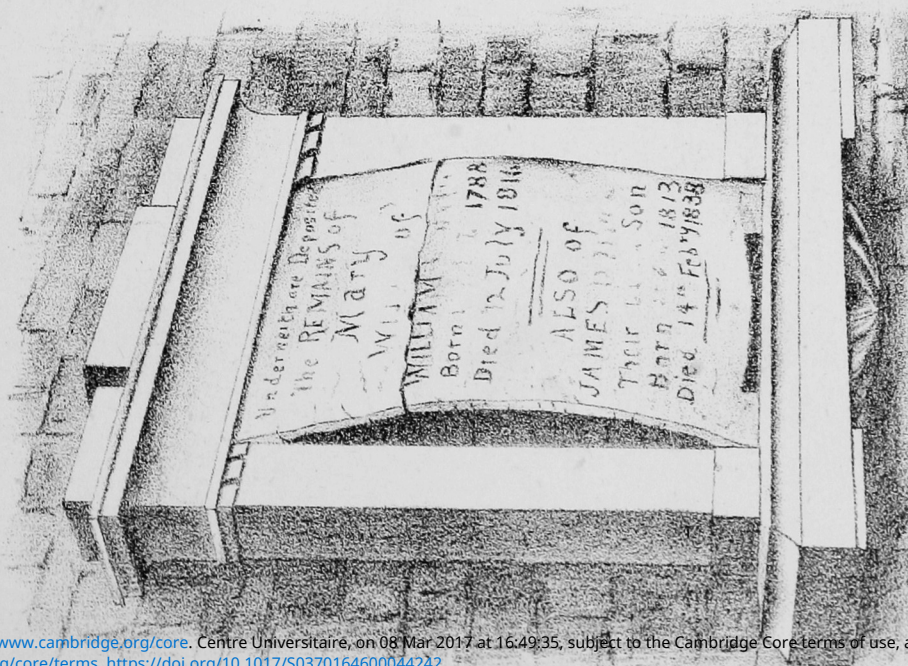 Underneith are Deposite
the REMAINS of
Mary
of
WILLIAM
Born 1788
Died 12 July 1816
ALSO of
JAMES
Their Son
Born 1813
Died 14th Febry 1838
www.cambridge.org/core. Centre Universitaire, on 08 Mar 2017 at 16:49:35, subject to the Cambridge Core terms of use, a
g/core/terms. https://doi.org/10.1017/S0370164600044242